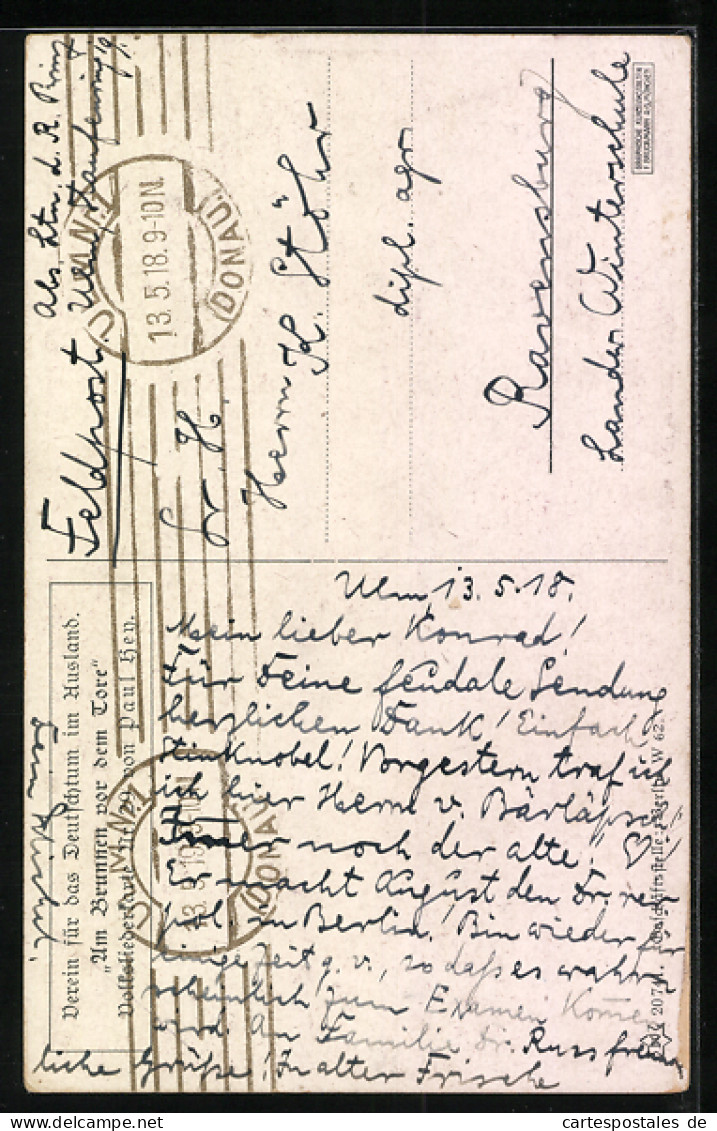 Abs. Ltn. d. R. Prinz
Feldpost.
ULM
13.5.18.9-10N.
(DONAU)
S. H.
Herrn K. Stöhr
dipl. agr.
Ravensburg
Landw. Winterschule
GRAPHISCHE KUNSTANSTALTEN
F. BRUCKMANN A.G. MÜNCHEN
Verein für das Deutschtum im Ausland.
"Am Brunnen vor dem Tore"
Volksliederkarte von Paul Hey.
Ulm, 13.5.18.
Mein lieber Konrad!
Für Deine feudale Sendung
herzlichen Dank! Einfach
stinknobel! Vorgestern traf ich
ich hier Herrn v. Bärläpsch
Immer noch der alte!
Er macht August den Dr. rer.
pol. in Berlin. Bin wieder für
einige Zeit g. v., so daß es wahr-
scheinlich zum Examen kommen
wird. An Familie Dr. Russ freund-
liche Grüße! In alter Frische
Dein
ULM
(DONAU)
Geschäftsstelle: Berlin W 62.
cartespostales.de